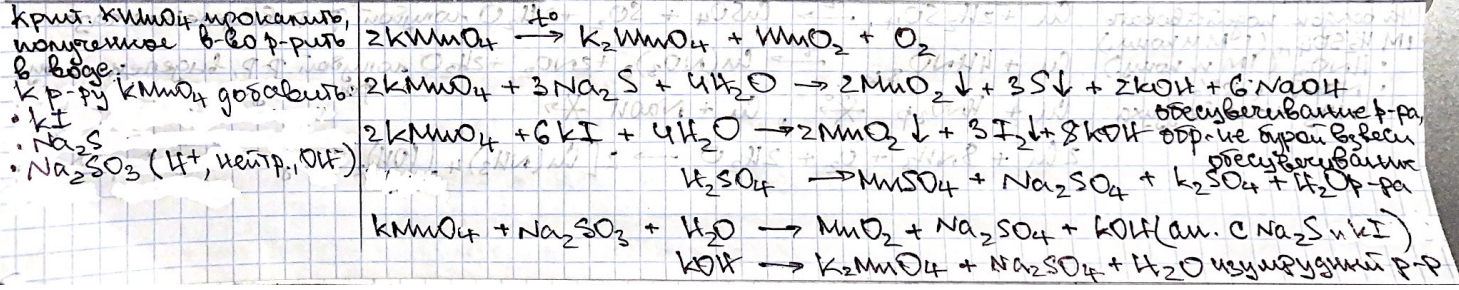 Крист. KMnO4 прокалить,
полученное в-во р-рить
в воде:
К р-ру KMnO4 добавить:
• KI
• Na2S
• Na2SO3 (H+, нейтр., OH-)
2KMnO4 →t° K2MnO4 + MnO2 + O2
2KMnO4 + 3Na2S + 4H2O → 2MnO2↓ + 3S↓ + 2KOH + 6NaOH
обесцвечивание р-ра,
2KMnO4 + 6KI + 4H2O → 2MnO2↓ + 3I2↓ + 8KOH обр-ие бурой взвеси
обесцвечивание
H2SO4 → MnSO4 + Na2SO4 + K2SO4 + H2O р-ра
KMnO4 + Na2SO3 + H2O → MnO2 + Na2SO4 + KOH (ан. с Na2S и KI)
KOH → K2MnO4 + Na2SO4 + H2O изумрудный р-р